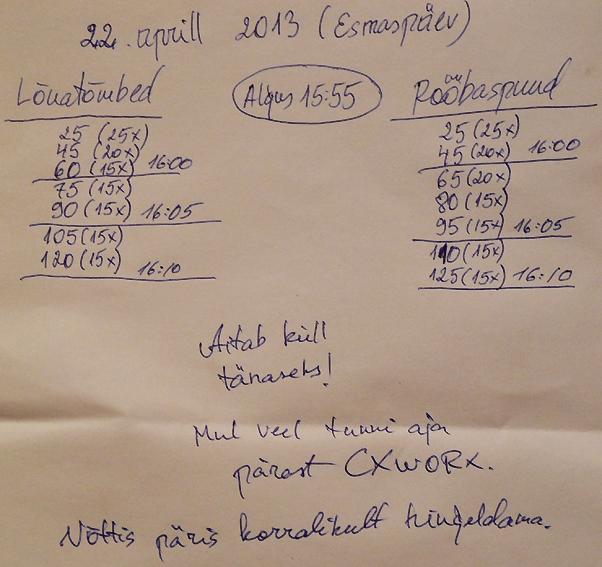 22. aprill 2013 (Esmaspäev)
Lõuatõmbed
Algus 15:55
Rööbaspuud
25 (25x)
45 (20x)
60 (15x) 16:00
75 (15x)
90 (15x) 16:05
105 (15x)
120 (15x) 16:10
25 (25x)
45 (20x) 16:00
65 (20x)
80 (15x)
95 (15x) 16:05
110 (15x)
125 (15x) 16:10
Aitab küll
tänaseks!
Mul veel tunni aja
pärast CXWORX.
Võttis päris korralikult hingeldama.